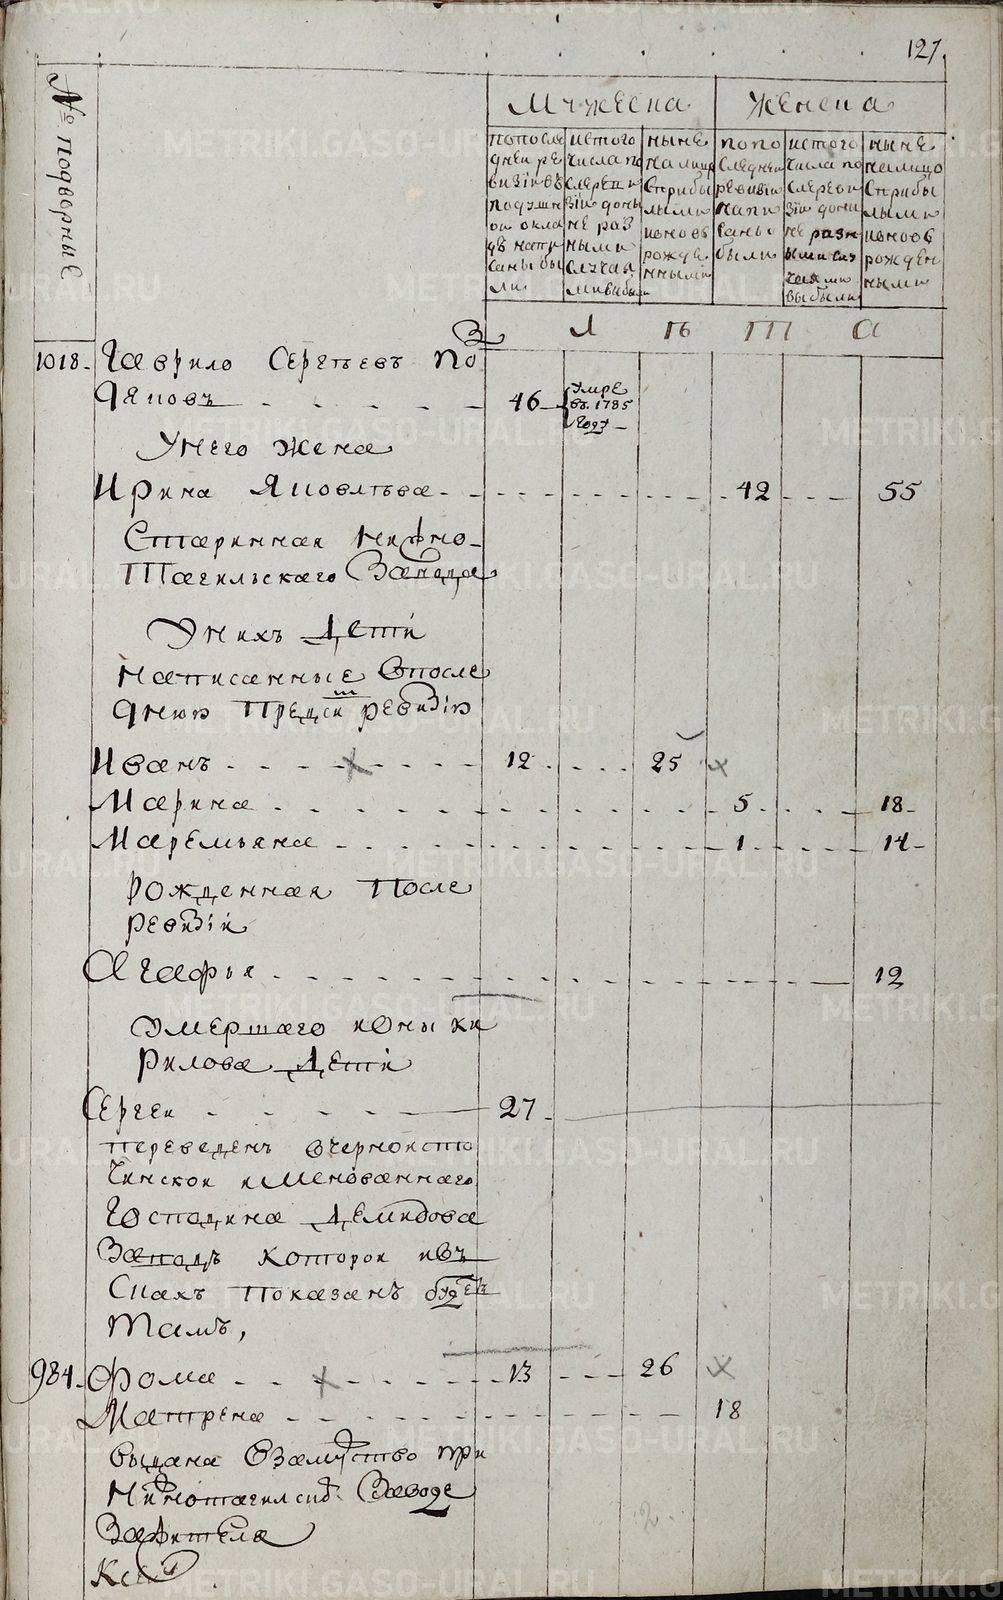 127.
№ подворные
Мужеска
Женска
попосле
дней ре
визіи въ
подушн
ои окла
дъ напи
саны бы
ли
истого
числа по
слереви
зіи доны
не раз
ными
случая
ми выбыли
ныне
налицо
сприбы
лыми
ивновь
рожде
нными
попо
следнеи
ревизіи
напи
саны
были
истого
числа по
слереви
зіи доны
не разн
ыми слу
чаями
выбыли
ныне
налицо
сприбы
лыми
ивновь
рожден
ными
Л ѣ т а
1018. Гаврило Сергѣевъ По
дяповъ 46 умре
въ 1785
году
Унего жена
Ирина Яковлѣва 42 55
Старинная Нижно
Тагильскаго Завода
Унихъ Дети
написанные впосле
днюю предъ сіи ревизію
Иванъ 12 25
Марина 5 18
Маремьяна 1 14
рожденная после
ревизіи
Агафья 12
Умершаго ионы ки
рилова Дети
Сергеи 27
переведенъ вчерноисто
чинскои имянованнаго
Господина Демидова
Заводъ которои ивъ
скаскъ показанъ будетъ
тамъ,
984. Фома 13 26
Матрена 18
выдана взамуство при
Нижнотагилскомъ Заводе
Зажителя